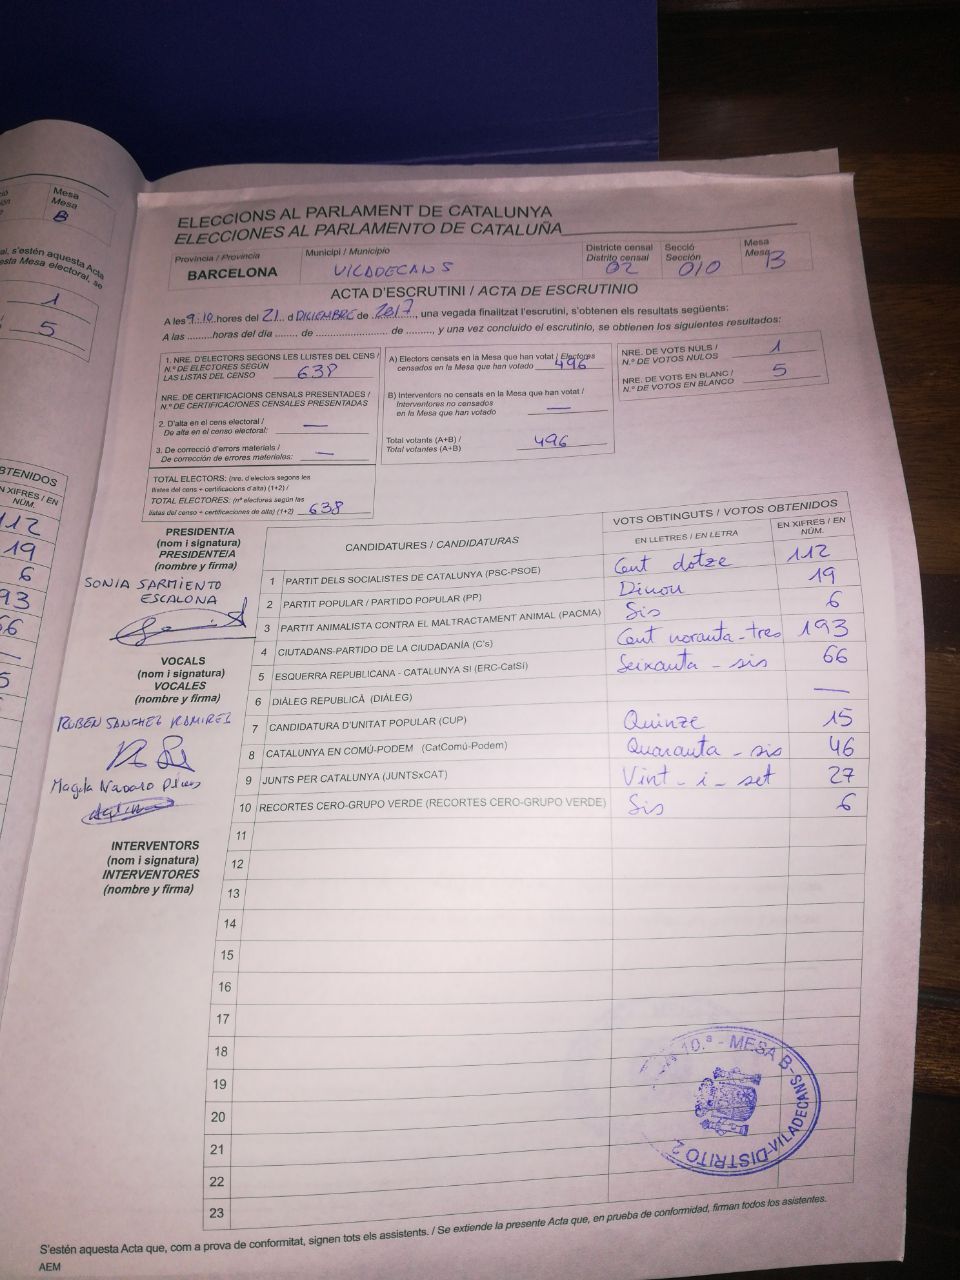 Mesa
Mesa
B
1
5
OBTINGUTS
EN XIFRES / EN
NÚM.
112
19
6
93
66
5
ELECCIONS AL PARLAMENT DE CATALUNYA
ELECCIONES AL PARLAMENTO DE CATALUÑA
Província / Provincia
BARCELONA
Municipi / Municipio
VILADECANS
Districte censal
Distrito censal
02
Secció
Sección
010
Mesa
Mesa
B
ACTA D'ESCRUTINI / ACTA DE ESCRUTINIO
A les 9:10 hores del 21 d DICIEMBRE de 2017, una vegada finalitzat l'escrutini, s'obtenen els resultats següents:
A las ......... horas del día ....... de ...................... de ........, y una vez concluido el escrutinio, se obtienen los siguientes resultados:
1. NRE. D'ELECTORS SEGONS LES LLISTES DEL CENS /
N.º DE ELECTORES SEGÚN
LAS LISTAS DEL CENSO 638
NRE. DE CERTIFICACIONS CENSALS PRESENTADES /
N.º DE CERTIFICACIONES CENSALES PRESENTADAS
2. D'alta en el cens electoral /
De alta en el censo electoral: —
3. De correcció d'errors materials /
De corrección de errores materiales: —
TOTAL ELECTORS: (nre. d'electors segons les
llistes del cens + certificacions d'alta) (1+2) /
TOTAL ELECTORES: (nº electores según las
listas del censo + certificaciones de alta) (1+2) 638
A) Electors censats en la Mesa que han votat / Electores
censados en la Mesa que han votado 496
B) Interventors no censats en la Mesa que han votat /
Interventores no censados
en la Mesa que han votado —
Total votants (A+B) /
Total votantes (A+B) 496
NRE. DE VOTS NULS /
N.º DE VOTOS NULOS 1
NRE. DE VOTS EN BLANC /
N.º DE VOTOS EN BLANCO 5
PRESIDENT/A
(nom i signatura)
PRESIDENTE/A
(nombre y firma)
SONIA SARMIENTO
ESCALONA
VOCALS
(nom i signatura)
VOCALES
(nombre y firma)
RUBEN SANCHEZ RAMIREZ
Magda Navarro
INTERVENTORS
(nom i signatura)
INTERVENTORES
(nombre y firma)
CANDIDATURES / CANDIDATURAS
VOTS OBTINGUTS / VOTOS OBTENIDOS
EN LLETRES / EN LETRA
EN XIFRES / EN
NÚM.
1 PARTIT DELS SOCIALISTES DE CATALUNYA (PSC-PSOE) Cent dotze 112
2 PARTIT POPULAR / PARTIDO POPULAR (PP) Dinou 19
3 PARTIT ANIMALISTA CONTRA EL MALTRACTAMENT ANIMAL (PACMA) Sis 6
4 CIUTADANS-PARTIDO DE LA CIUDADANÍA (C's) Cent noranta-tres 193
5 ESQUERRA REPUBLICANA - CATALUNYA SI (ERC-CatSí) Seixanta-sis 66
6 DIÀLEG REPUBLICÀ (DIÀLEG) —
7 CANDIDATURA D'UNITAT POPULAR (CUP) Quinze 15
8 CATALUNYA EN COMÚ-PODEM (CatComú-Podem) Quaranta-sis 46
9 JUNTS PER CATALUNYA (JUNTSxCAT) Vint-i-set 27
10 RECORTES CERO-GRUPO VERDE (RECORTES CERO-GRUPO VERDE) Sis 6
11
12
13
14
15
16
17
18
19
20
21
22
23
10.ª - MESA B - VILADECANS - DISTRITO 2
S'estén aquesta Acta que, com a prova de conformitat, signen tots els assistents. / Se extiende la presente Acta que, en prueba de conformidad, firman todos los asistentes.
AEM